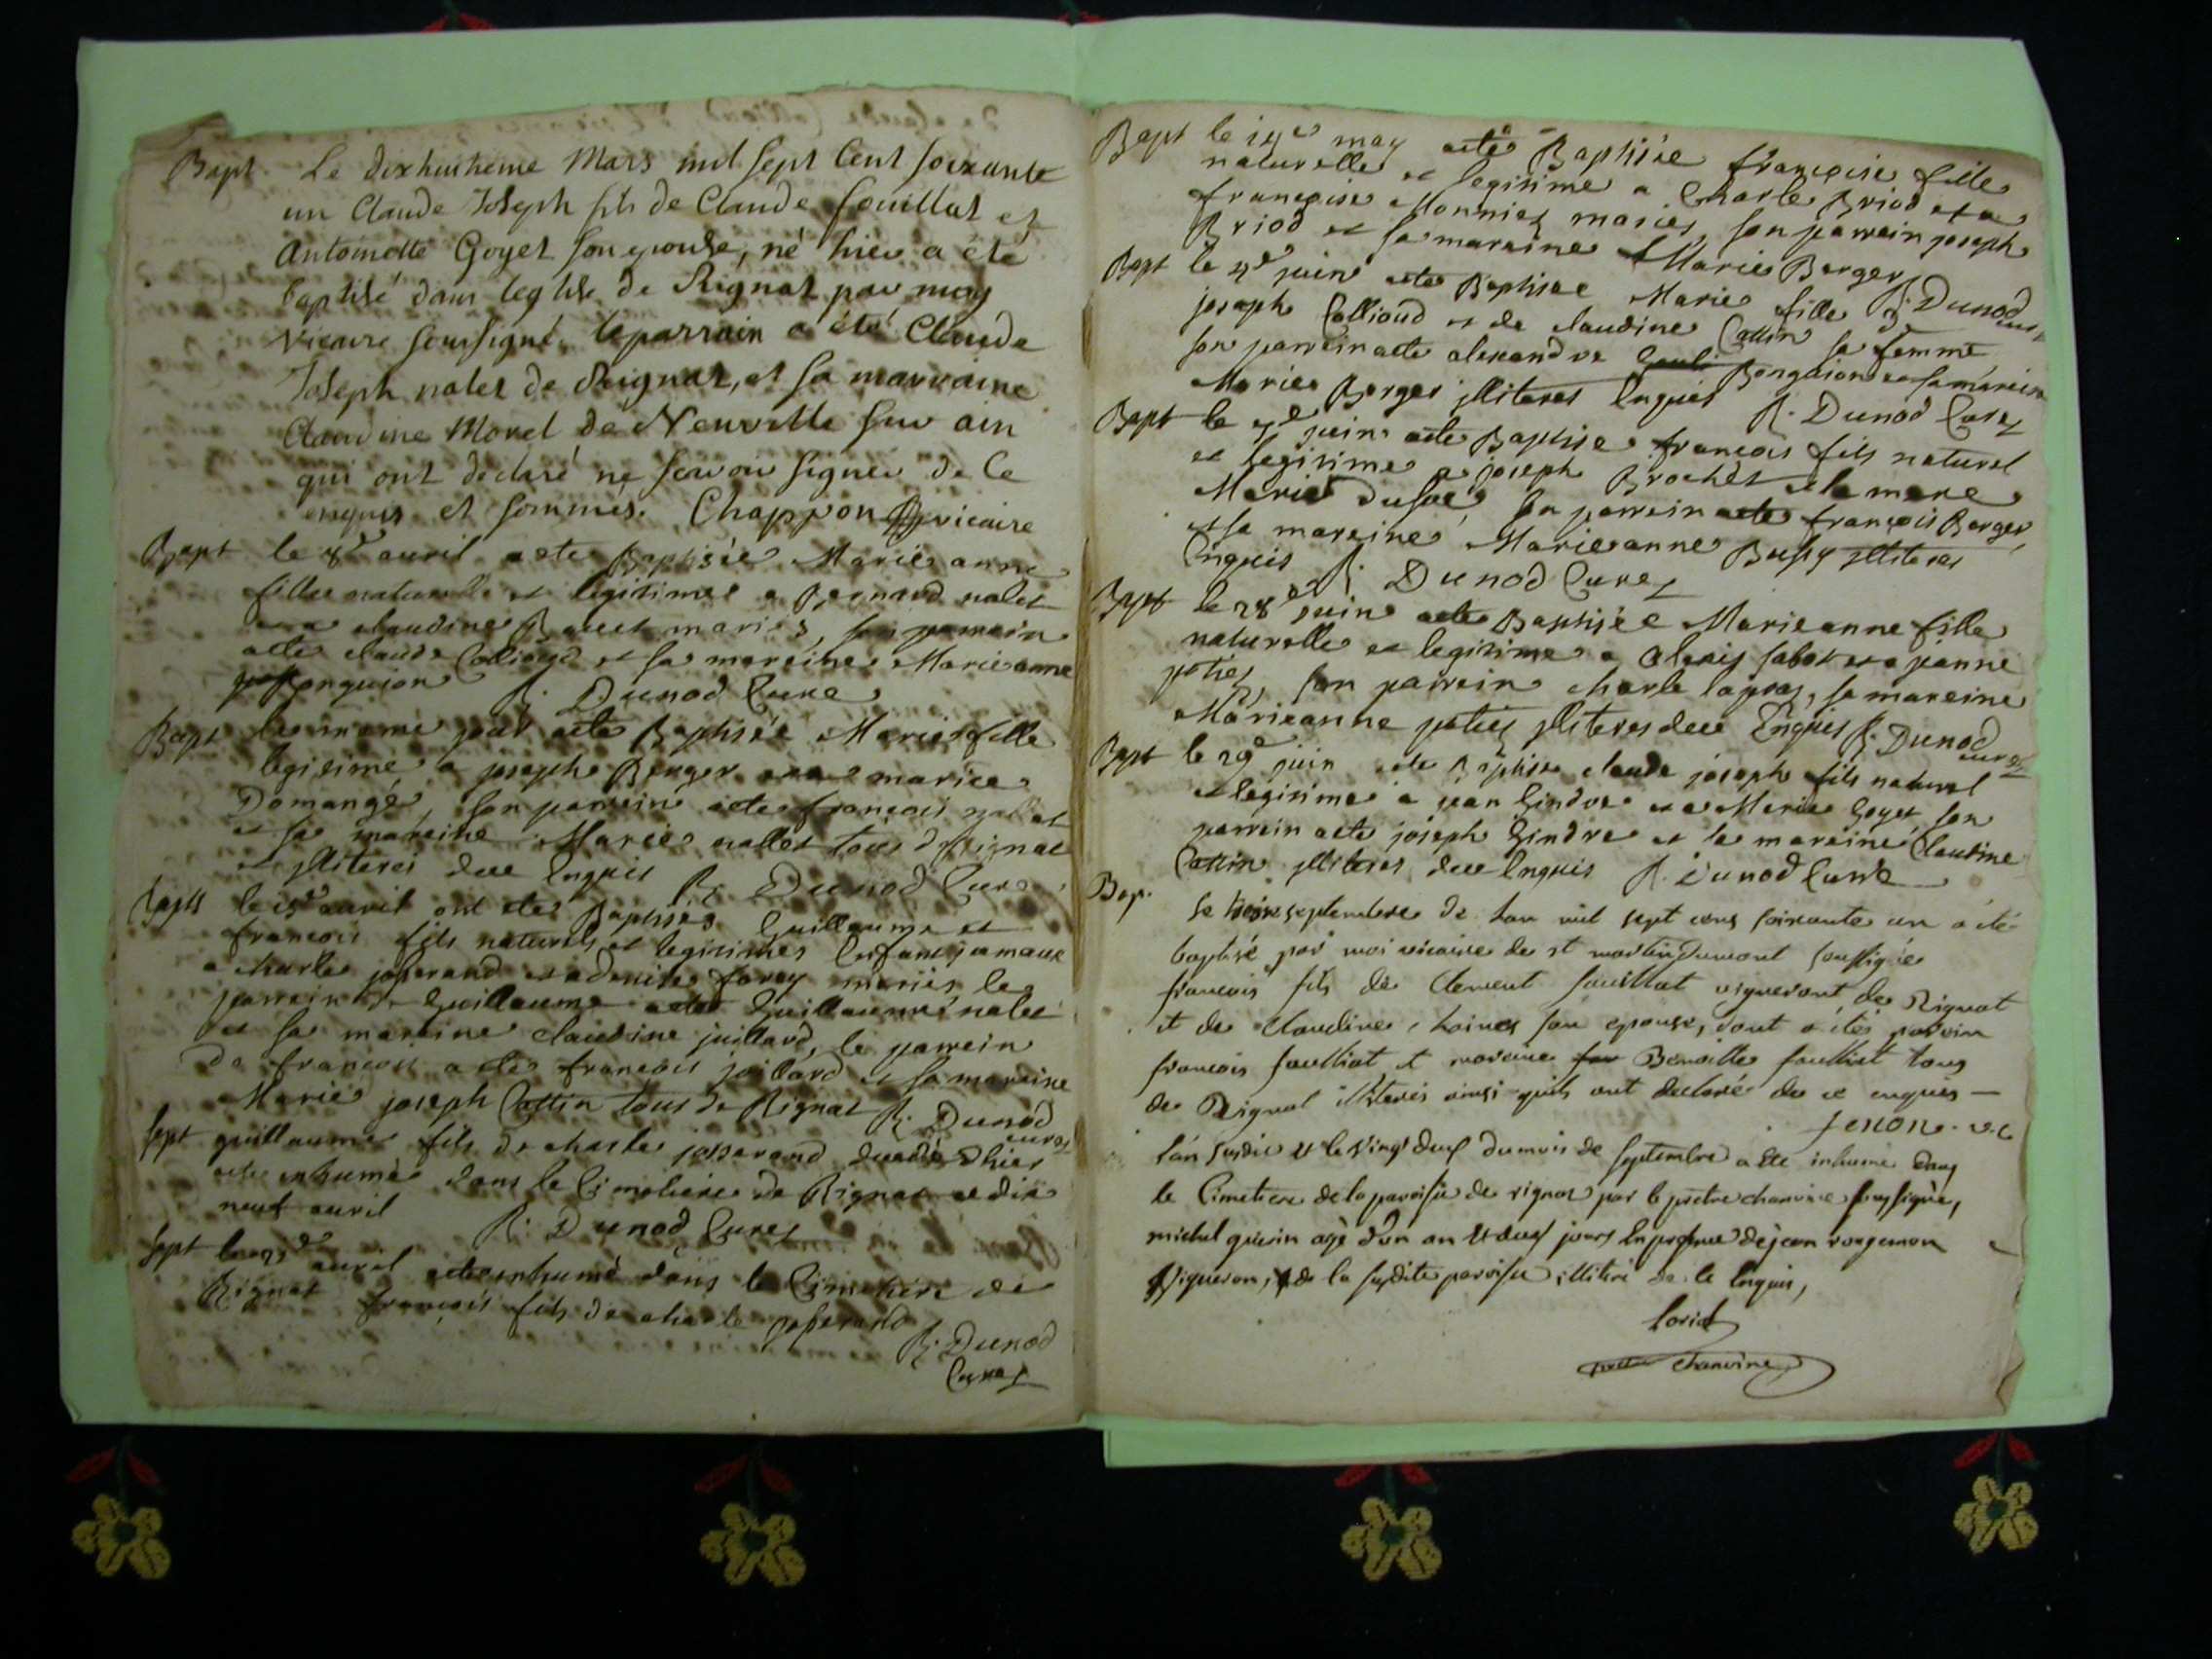 Bapt. Le dixhuitieme Mars mil sept Cent soixante
un Claude Joseph fils de Claude fouillat et
Antoinette Goyet son epouse, né hier a été
baptisé dans leglise de Rignat par moy
vicaire soussigné, leparrain a été Claude
Joseph nalet de Rignat, et sa marraine
Claudine Morel de Neuville sur ain
qui ont declaré ne scavoir signer de Ce
enquis et sommés. Chappon vicaire
Bapt le 8e avril a ete Baptisée Marie anne
fille naturelle et legitime a Bernard nalet
et a claudine maries, son parrein
a ete claude Callioud et sa mareine Marie anne
Bonguion R. Dunod Cure
Bapt le meme jour a ete Baptisée Marie fille
legitime a joseph Berger et a marie
Domange, son parrein a ete francois nallet
et sa mareine Marie nallet tous de Rignat
et illiteres de ce Enquis R. Dunod Cure
Bapts le 15e avril ont ete Baptisés Guillaume et
francois fils naturels et legitimes Enfans jumaux
a charle josserand et a denise favoy mariés le
parrein de Guillaume a ete Guillaume nalet
et sa mareine claudine juillard, le parrein
de francois a ete francois juillard et sa mareine
Marie joseph Cattin tous de Rignat R. Dunod
curez
Sept guillaume fils de charle josserand decedé d'hier
a ete inhumé dans le Cimetiere de Rignat ce dix
neuf avril R. Dunod Curez
Sept le avril a ete inhumé dans le Cimetiere de
Rignat francois fils de charle josserand
R. Dunod
Curez
Bapt le may a eté Baptisée francoise fille
naturelle et legitime a Charle Briod et a
francoise Monnier mariés, son parrein joseph
Briod et sa mareine Marie Berger
R. Dunod
curez
Bapt le juin a ete Baptisée Marie fille a
joseph Callioud et de claudine Cattin sa femme
son parrein a ete alexandre Bonguion et sa mareine
Marie Berger illiteres Enquis R. Dunod Curez
Bapt le juin a ete Baptisé francois fils naturel
et legitime a joseph Brochet et la mere
Marie dufoé, son parrein a ete francois Berger
et sa mareine Marieanne Bussy illiteres
Enquis R. Dunod Curez
Bapt le 28e juin a ete Baptisée Marieanne fille
naturelle et legitime a alexis sabot et a jeanne
potier, son parrein charle lapras, sa mareine
Marieanne potier illiteres de ce Enquis R. Dunod
curez
Bapt le 29e juin a ete Baptisé claude joseph fils naturel
et legitime a jean Gindre et a Marie Goyet son
parrein a ete joseph Gindre et sa mareine Claudine
Cattin illiteres de ce Enquis R. Dunod Curé
Bap. le trois septembre de l'an mil sept cens soixante un a été
baptisé par moi vicaire de st martin Dumont soussigné
francois fils de Clement fouilliat vigneront de Rignat
et de Claudine son epouse, dont a étés parain
francois fouilliat et maraine Benoitte fouilliat tous
de Rignat illiterés ainsi quils ont declaré de ce enquis
fenon. vic
l'an susdit et le vingt deux du mois de septembre a été inhumé dans
le Cimetiere de la paroisse de rignat par le pretre chanoine soussigné,
michel guerin agé d'un an et deux jours En presence de jean rougemon
Vigneron, de la susdite paroisse illitéré de ce Enquis,
loriol
chanoine